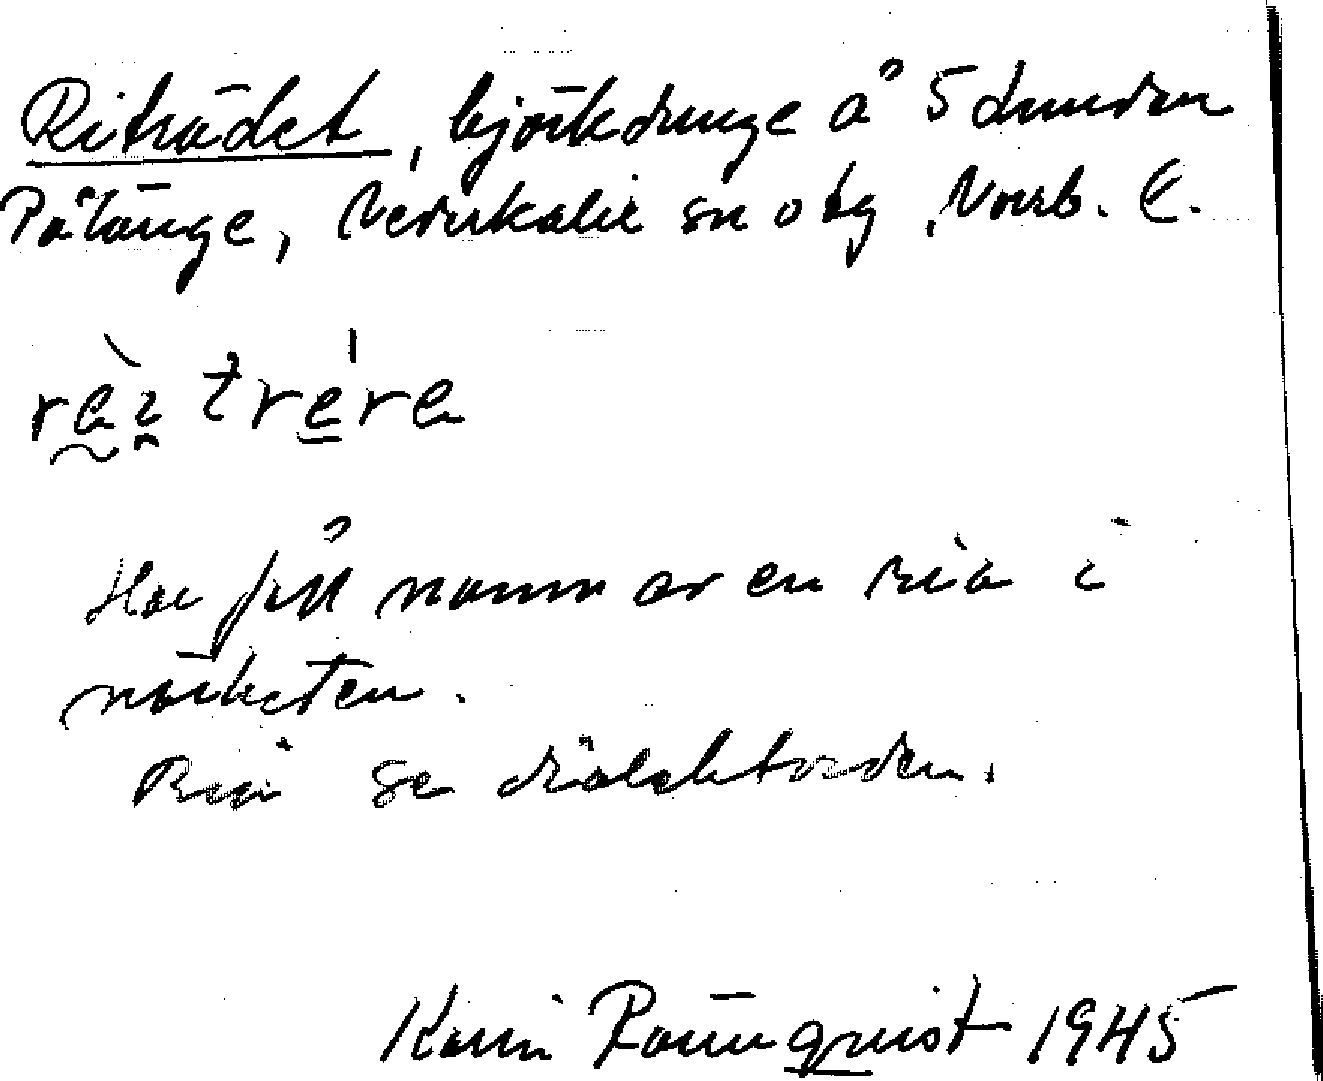 Riträdet, björkdunge å 5 dunder
Pålänge, Nederkalix sn o tg, Norrb. l.
Har fått namn av en ria i
närheten.
Ria se dialektorden.
Karin Rönnquist 1945